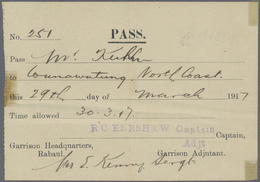 PASS.
No. 251
Pass Mr. Kuhn
to Wunawutung North Coast.
this 29th day of March 1917
Time allowed 30.3.17.
R C KERSHAW Captain
Captain,
Adjt
Garrison Headquarters, Garrison Adjutant.
Rabaul. Kenny Sergt